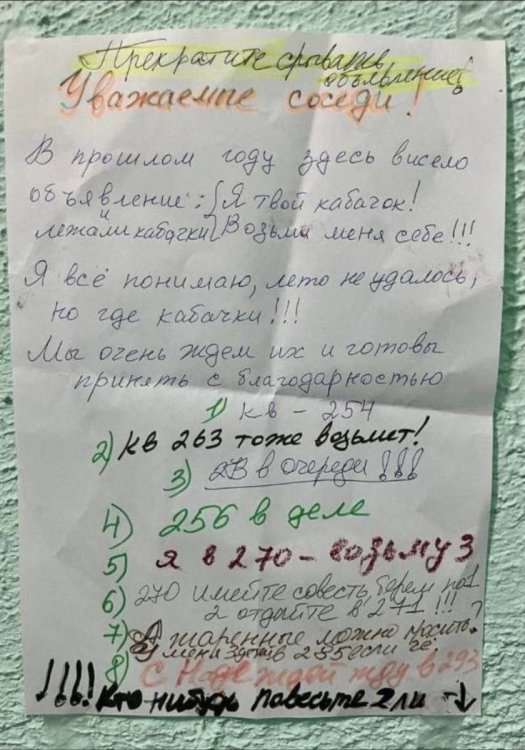 Прекратите срывать
объявление!
Уважаемые соседи!
В прошлом году здесь висело
объявление: Я твой кабачок!
и
лежали кабачки Возьми меня себе!!!
Я всё понимаю, лето не удалось,
но где кабачки!!!
Мы очень ждем их и готовы
принять с благодарностью
1) кв - 254
2) кв 263 тоже возьмет!
3) 2В в очереди!!!
4) 256 в деле
5) Я в 270 - возьму 3
6) 270 имейте совесть берем по 1
2 отдайте в 271!!!
7) А жаренные можно просить?
У меня 285 если че
8) С Надеждой жду в 293
!!!! Кто нибудь повесьте 2 ли